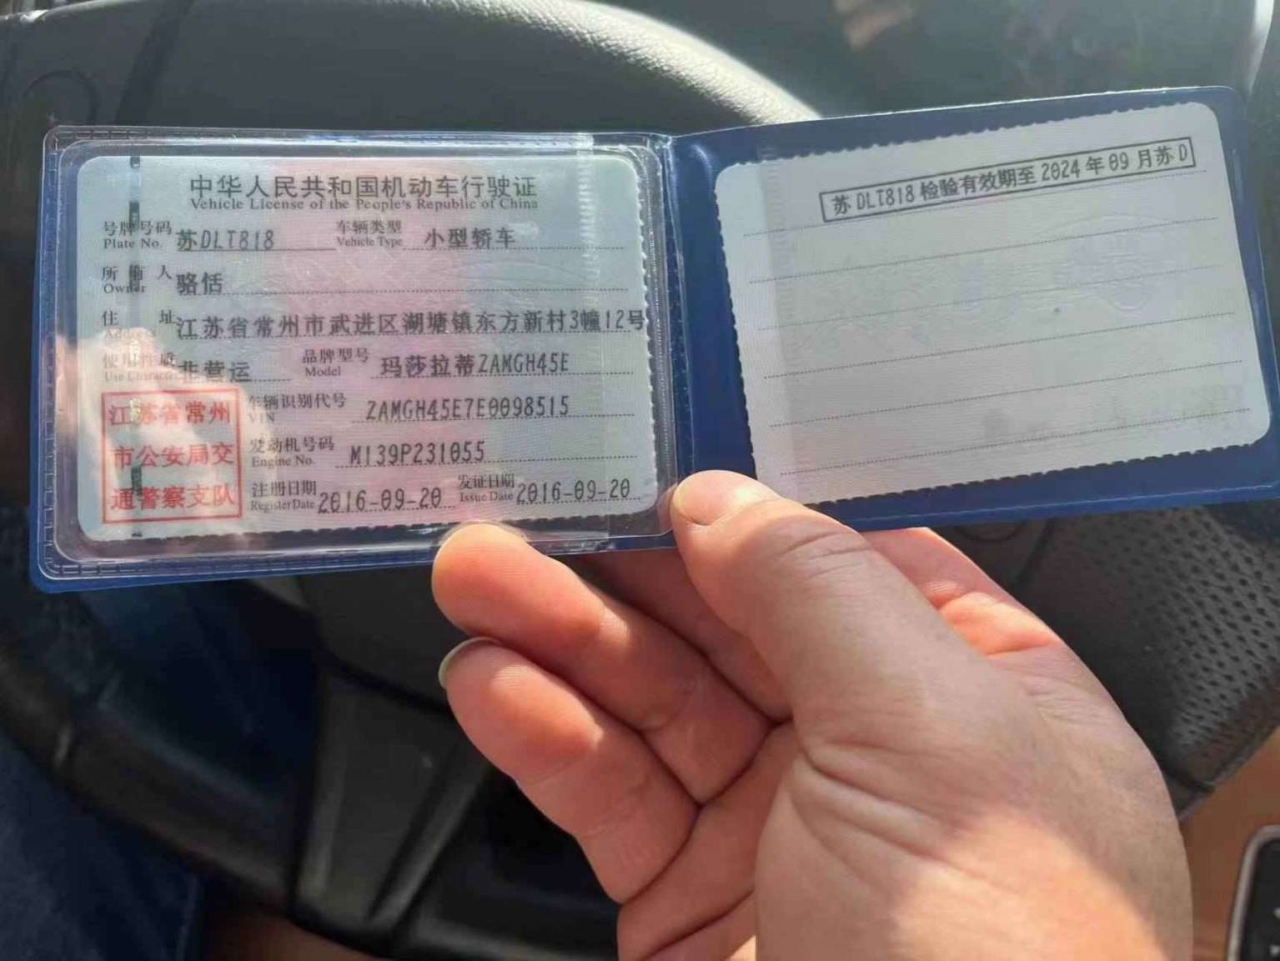 中华人民共和国机动车行驶证
Vehicle License of the People's Republic of China
号牌号码 苏DLT818 车辆类型 小型轿车
Plate No. Vehicle Type
所有人 骆恬
Owner
住址 江苏省常州市武进区湖塘镇东方新村3幢12号
Address
使用性质 非营运 品牌型号 玛莎拉蒂ZAMGH45E
Use Character Model
车辆识别代号 ZAMGH45E7E0098515
VIN
发动机号码 M139P231055
Engine No.
注册日期 2016-09-20 发证日期 2016-09-20
Register Date Issue Date
江苏省常州
市公安局交
通警察支队
苏DLT818 检验有效期至 2024 年 09 月苏D